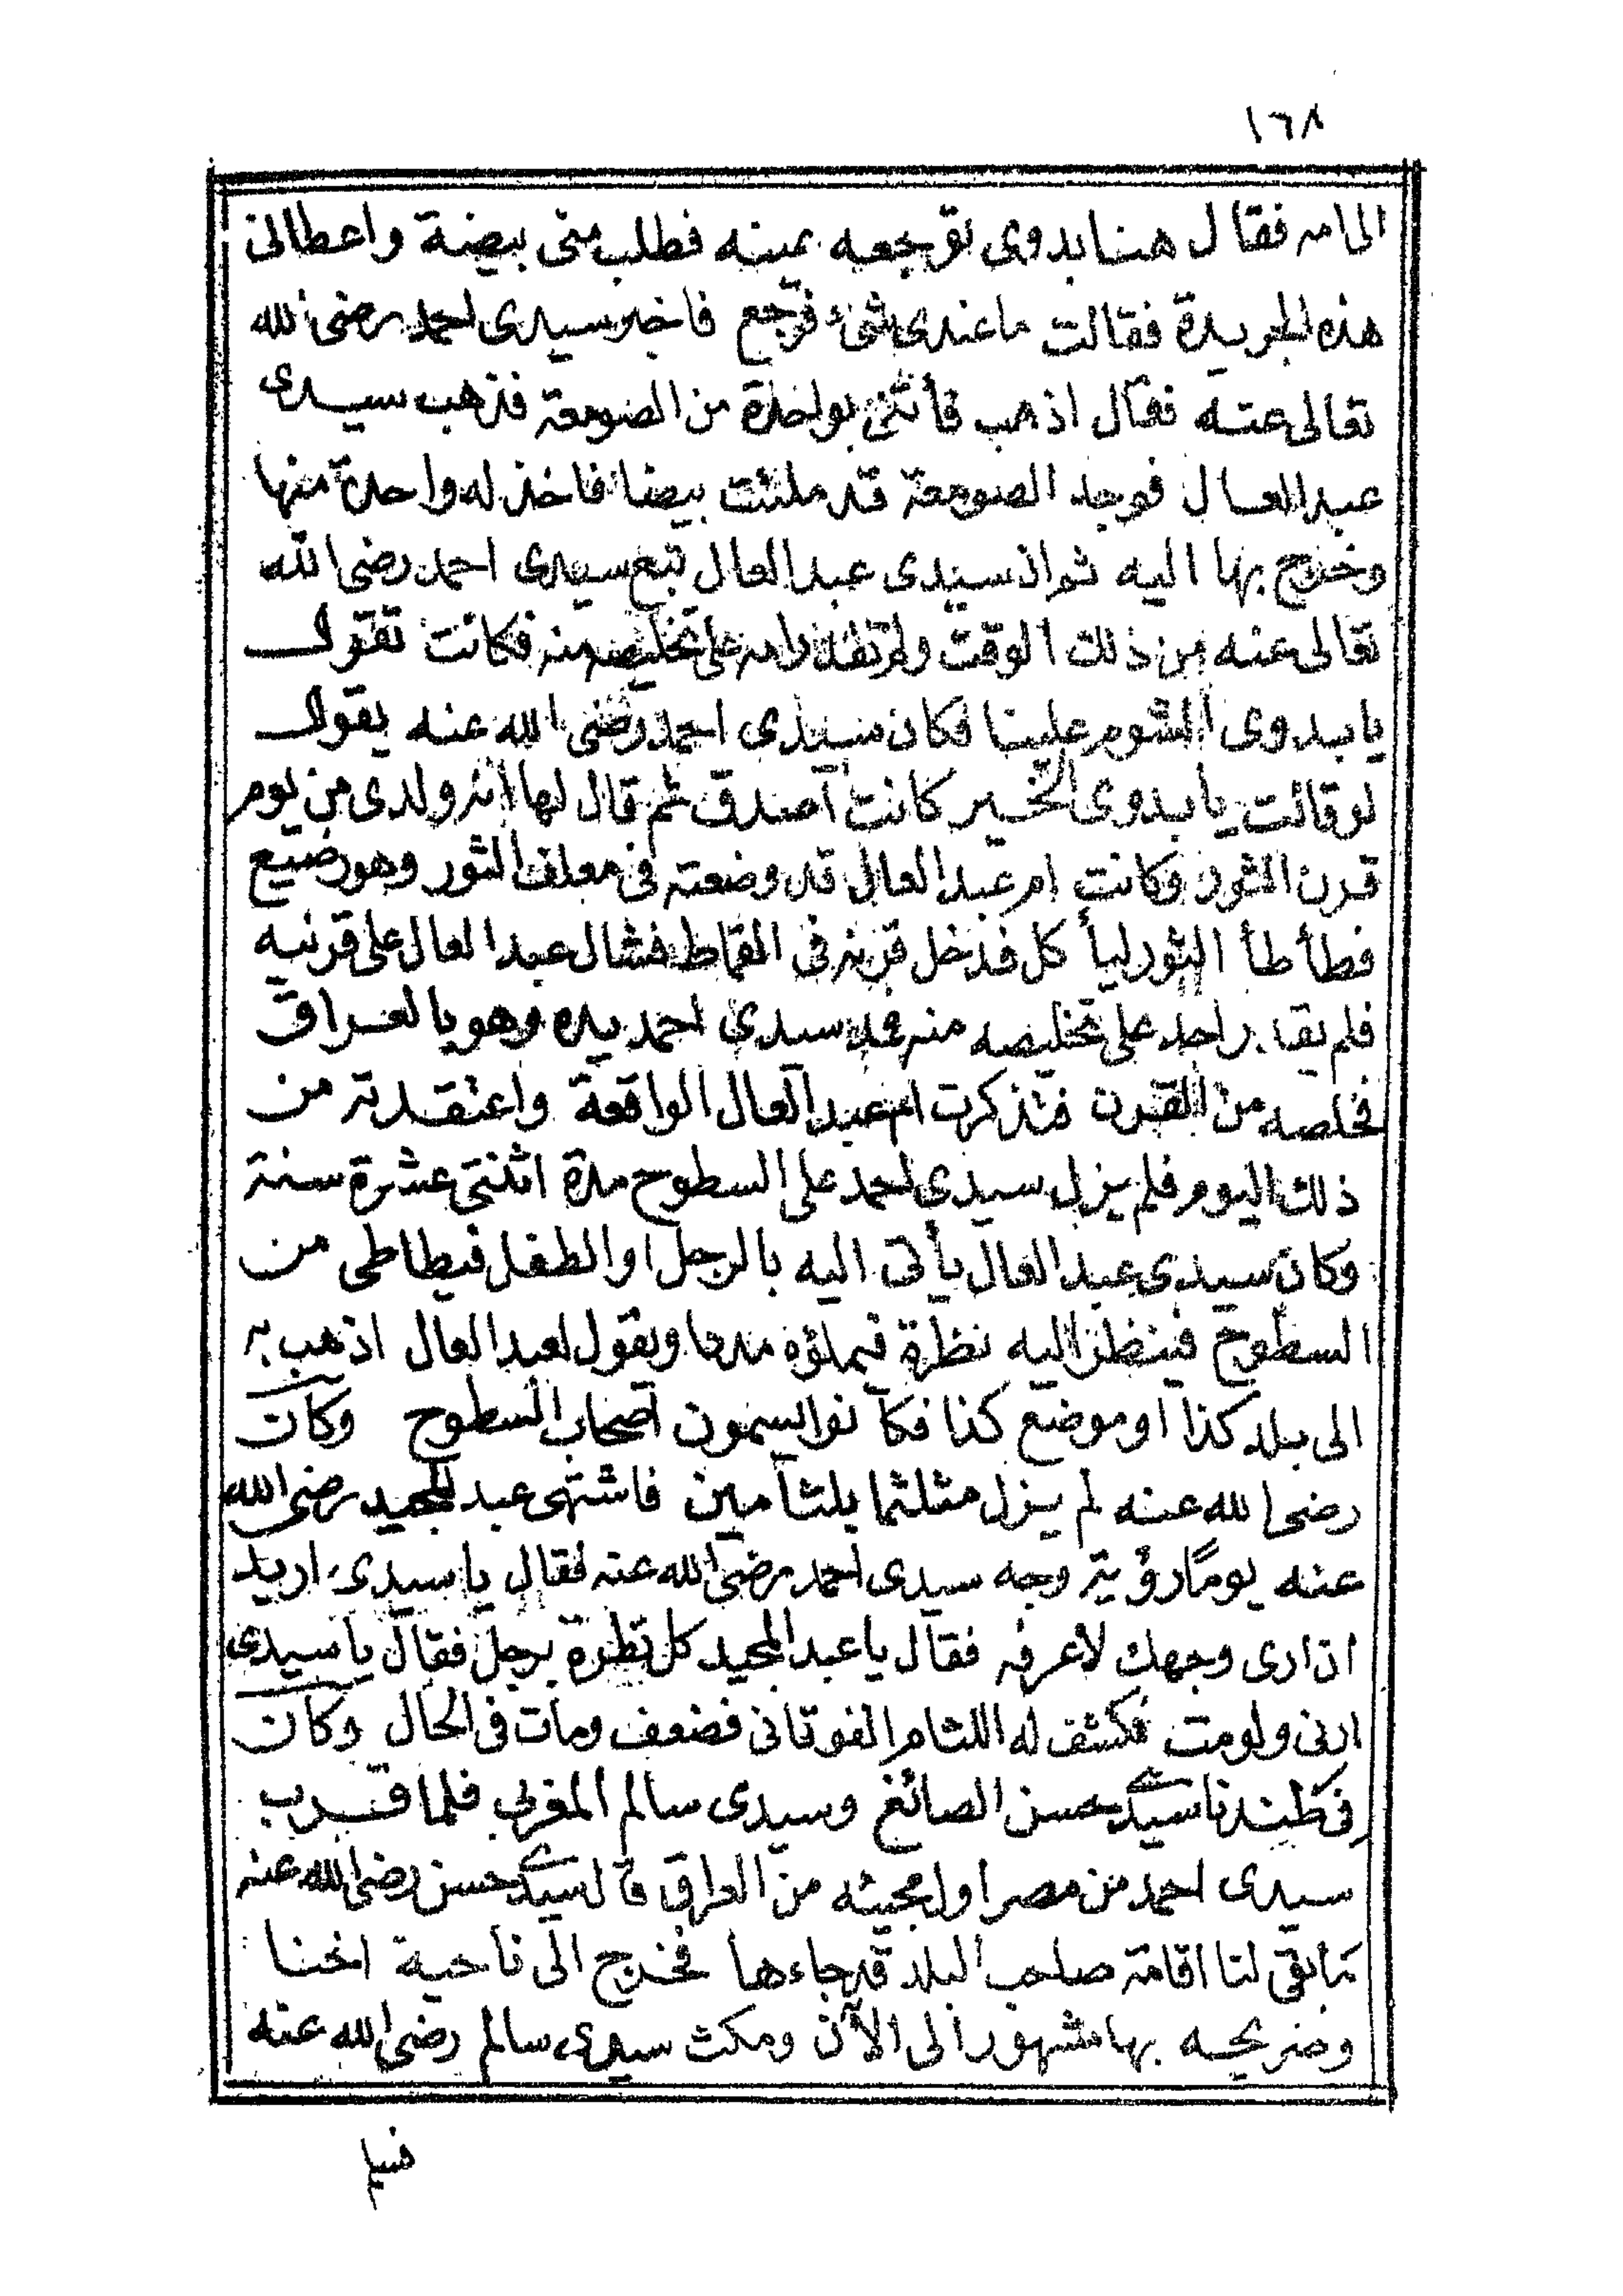 ١٦٨
الى امه فقال هنا بدوى توجعه عينه فطلب منى بيضة واعطانى
هذه الجريدة فقالت ما عندى شئ فرجع فاخبر سيدى احمد رضى الله
تعالى عنه فقال اذهب فأتنى بواحدة من الصومعة فذهب سيدى
عبد العال فوجد الصومعة قد ملئت بيضا فاخذ له واحدة منها
وخرج بها اليه ثم ان سيدى عبد العال تبع سيدى احمد رضى الله
تعالى عنه من ذلك الوقت ولم تقدر امه على تخليصه منه فكانت تقول
يا بدوى الشوم علينا فكان سيدى احمد رضى الله عنه يقول
لو قالت يا بدوى الخير كانت أصدق ثم قال لها انه ولدى من يوم
قرن الثور وكانت ام عبد العال قد وضعته فى معلف الثور وهو رضيع
فطأطأ الثور ليأكل فدخل قرنه فى القماط فشال عبد العال على قرنيه
فلم يقدر احد على تخليصه منه فمد سيدى احمد يده وهو بالعراق
فخلصه من القرن فتذكرت ام عبد العال الواقعة واعتقدته من
ذلك اليوم فلم يزل سيدى احمد على السطوح مدة اثنتى عشرة سنة
وكان سيدى عبد العال يأتى اليه بالرجل او الطفل فيطاطى من
السطوح فينظر اليه نظرة فيملؤه مددا ويقول لعبد العال اذهب به
الى بلد كذا او موضع كذا فكانوا يسمون اصحاب السطوح وكان
رضى الله عنه لم يزل متلثما بلثامين فاشتهى عبد المجيد رضى الله
عنه يوماً رؤية وجه سيدى احمد رضى الله عنه فقال يا سيدى اريد
ان ارى وجهك لأعرفه فقال يا عبد المجيد كل نظرة برجل فقال يا سيدى
ارنى ولو مت فكشف له اللثام الفوقانى فضعف ومات فى الحال وكان
فى طندتا سيدى حسن الصائغ وسيدى سالم المغربى فلما قرب
سيدى احمد من مصر اول مجيئه من العراق قال سيدى حسن رضى الله عنه
ما بقى لنا اقامة صاحب البلد قد جاءها فخرج الى ناحية اخنا
وضريحه بها مشهور الى الآن ومكث سيدى سالم رضى الله عنه
فسلم